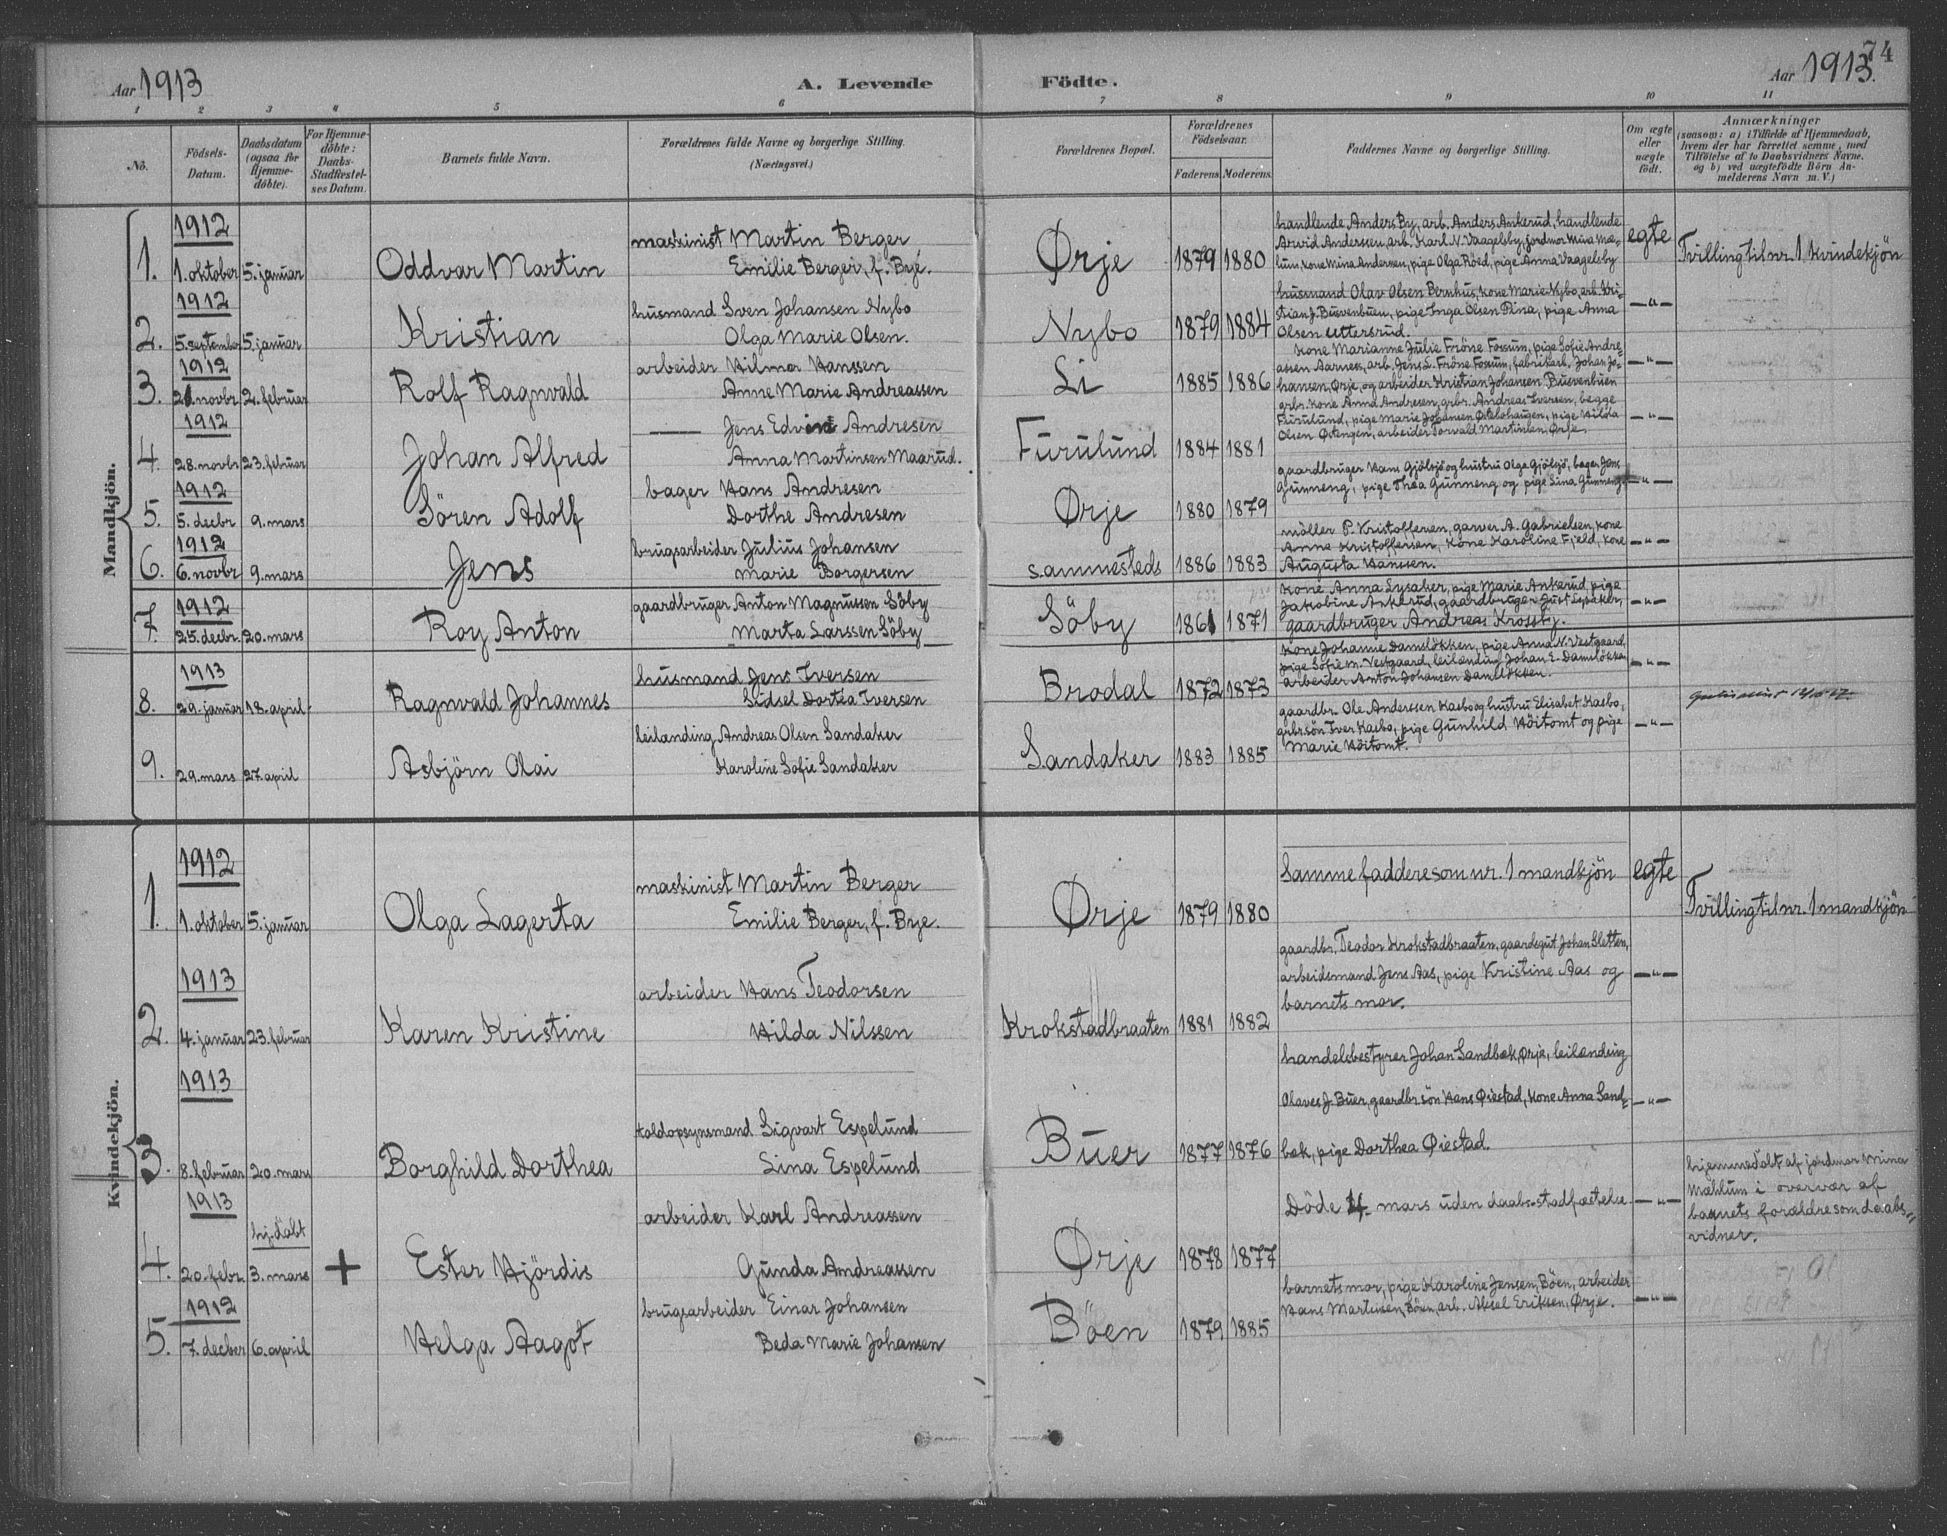 74
Aar 1913
A. Levende Födte.
Aar 1913.
1 2 3 4 5 6 7 8 9 10 11
No.
Födsels-Datum.
Daabsdatum (ogsaa for Hjemme-döbte).
For Hjemme-döbte: Daabs-Stadfæstel-ses Datum.
Barnets fulde Navn.
Forældrenes fulde Navne og borgerlige Stilling.
(Næringsvei.)
Forældrenes Bopæl.
Forældrenes Födselsaar.
Faderens Moderens
Faddernes Navne og borgerlige Stilling.
Om ægte eller uægte födt.
Anmærkninger
(saasom: a) i Tilfælde af Hjemmedaab,
hvem der har forrettet samme, med
Tilföielse af to Daabsvidners Navne.
og b) ved uægtefödte Börn An-
melderens Navn m. V.)
Mandkjön.
1912
1. 1. oktober 5. januar Oddvar Martin
maskinist Martin Berger
Emilie Berger, f. Bye.
Ørje 1879 1880
handlende Anders By, arb. Anders Ankerud, handlende
Arvid Anderssen, arb. Karl N. Vaagelsby, jordmor Mina Mæ-
lum, kone Mina Andersen, pige Olga Röed, pige Anna Vaagelsby
egte
Tvilling til nr. 1 kvindekjön
1912
2. 5. september 5. januar Kristian
husmand Sven Johansen Nybo
Olga Marie Olsen.
Nybo 1879 1884
husmand Olav Olsen Bernhus, kone Marie Nybo, arb. Kri-
stian J. Busvenbuen, pige Inga Olsen Pina, pige Anna
Olsen Ottersrud.
— " —
1912
3. 21 novbr 2. februar Rolf Ragnvald
arbeider Hilmar Hanssen
Anne Marie Andreassen
Li 1885 1886
Kone Marianne Julie Fröne Fossum, pige Sofie Andre-
assen Aarnæs, arb. Jens L. Fröne Fossum, fabrikarb. Johan Jo-
hansen, Ørje, og arbeider Kristian Johansen Busvenbuen
— " —
1912
4. 28. novbr 23. februar Johan Alfred
— Jens Edvin Andresen
Anna Martinsen Maarud.
Furulund 1884 1881
arbr. kone Anna Andresen, arbr. Andreas Iversen, begge
Furulund, pige Marie Johansen Østebohaugen, pige Hilda
Olsen Østengen, arbeider Torvald Martinsen Ørje.
— " —
1912
5. 5. decbr 9. mars Sören Adolf
bager Hans Andresen
Dorthe Andresen
Ørje 1880 1879
gaardbruger Hans Gjölsjö og hustru Olga Gjölsjö, bager Jens
Gunneng, pige Thea Gunneng og pige Lina Gunneng.
— " —
1912
6. 6. novbr 9. mars Jens
brugsarbeider Julius Johansen
Marie Borgersen
sammesteds 1886 1883
möller P. Kristoffersen, garver A. Gabrielsen, kone
Anna Kristoffersen, kone Karoline Fjeld, kone
Augusta Hanssen.
— " —
1912
7. 25. decbr. 20. mars Roy Anton
gaardbruger Anton Magnussen Söby
Marta Larssen Söby
Söby 1861 1871
Kone Anna Lysaker, pige Marie Ankerud, pige
Jakobine Ankerud, gaardbruger Just Lysaker,
gaardbruger Andreas Krossby.
— " —
1913
8. 29. januar 18. april Ragnvald Johannes
husmand Jens Iversen
Sidsel Dortea Iversen
Brodal 1872 1873
Kone Johanne Damslökken, pige Anna N. Vestgaard,
pige Sofie M. Vestgaard, leilænding Johan E. Damslökken
arbeider Anton Johansen Damslökken.
— " —
9. 29. mars 27. april Asbjörn Olai
leilænding Andreas Olsen Sandaker
Karoline Sofie Sandaker
Sandaker 1883 1885
gaardbr. Ole Anderssen Kasbo og hustru Elisabet Kasbo,
grbr.sön Iver Kasbo, pige Gunhild Höitomt og pige
Marie Höitomt.
— " —
Kvindekjön.
1912
1. 1. oktober 5. januar Olga Lagerta
maskinist Martin Berger
Emilie Berger, f. Bye.
Ørje 1879 1880
Samme faddere som nr. 1 mandkjön
egte
Tvilling til nr. 1 mandkjön
1913
2. 4. januar 23. februar Karen Kristine
arbeider Hans Teodorsen
Hilda Nilssen
Krokstadbraaten 1881 1882
gaardbr. Teodor Krokstadbraaten, gaardsgut Johan Sletten,
arbeidsmand Jens Aas, pige Kristine Aas og
barnets mor.
— " —
1913
3. 8. februar 20. mars Borghild Dorthea
toldopsynsmand Sigvart Espelund
Lina Espelund
Buer 1877 1876
handelsbestyrer Johan Sandbæk, Ørje, leilænding
Olaves J. Buer, gaardbr.sön Hans Øiestad, kone Anna Sand-
bæk, pige Dorthea Øiestad.
— " —
1913
4. 20. febr. hj.döbt 3. mars + Ester Hjördis
arbeider Karl Andreassen
Gunda Andreassen
Ørje 1878 1877
Döde 4. mars uden daabs-stadfæstelse
— " —
hjemmedöbt af jordmor Mina
Mæhlum i overvær af
barnets forældre som daabs-
vidner.
1912
5. 7. decber 6. april Helga Aagot
brugsarbeider Einar Johansen
Beda Marie Johansen
Böen 1879 1885
barnets mor, pige Karoline Jensen, Böen, arbeider
Hans Martinsen, Böen, arb. Aksel Eriksen, Ørje.
— " —